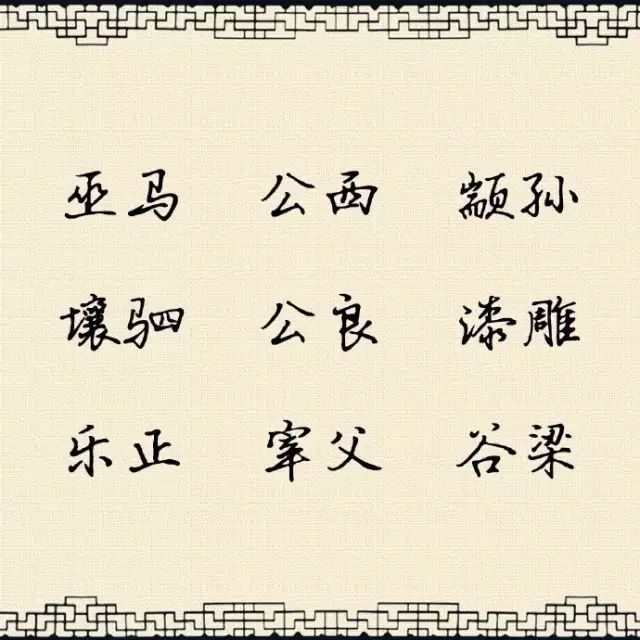 巫马 公西 颛孙
壤驷 公良 漆雕
乐正 宰父 谷梁